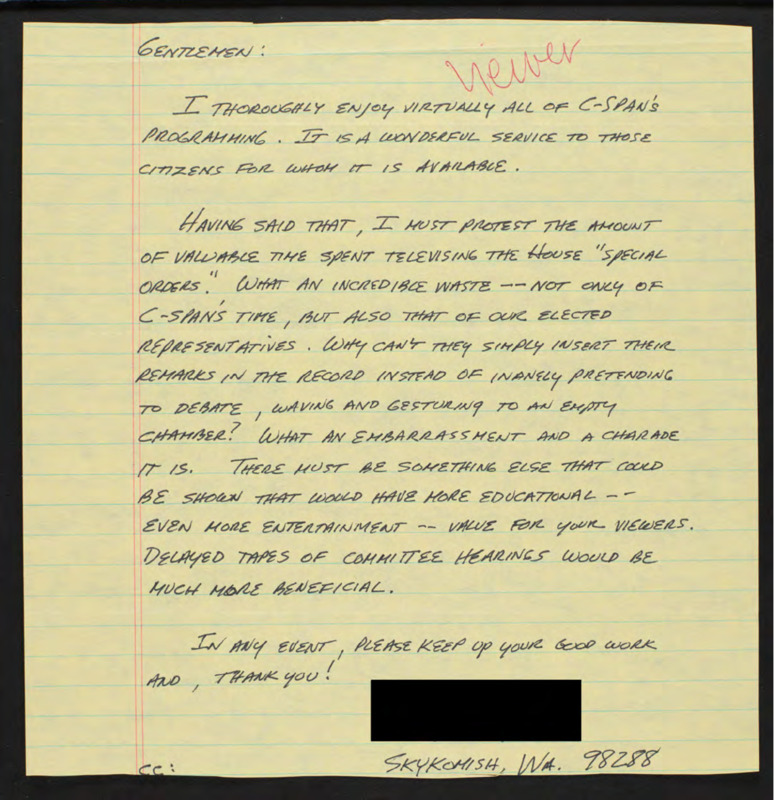 GENTLEMEN:
Viewer
I THOROUGHLY ENJOY VIRTUALLY ALL OF C-SPAN'S
PROGRAMMING. IT IS A WONDERFUL SERVICE TO THOSE
CITIZENS FOR WHOM IT IS AVAILABLE.
HAVING SAID THAT, I MUST PROTEST THE AMOUNT
OF VALUABLE TIME SPENT TELEVISING THE HOUSE "SPECIAL
ORDERS." WHAT AN INCREDIBLE WASTE -- NOT ONLY OF
C-SPAN'S TIME, BUT ALSO THAT OF OUR ELECTED
REPRESENTATIVES. WHY CAN'T THEY SIMPLY INSERT THEIR
REMARKS IN THE RECORD INSTEAD OF INANELY PRETENDING
TO DEBATE, WAVING AND GESTURING TO AN EMPTY
CHAMBER? WHAT AN EMBARRASSMENT AND A CHARADE
IT IS. THERE MUST BE SOMETHING ELSE THAT COULD
BE SHOWN THAT WOULD HAVE MORE EDUCATIONAL --
EVEN MORE ENTERTAINMENT -- VALUE FOR YOUR VIEWERS.
DELAYED TAPES OF COMMITTEE HEARINGS WOULD BE
MUCH MORE BENEFICIAL.
IN ANY EVENT, PLEASE KEEP UP YOUR GOOD WORK
AND, THANK YOU!
SKYKOMISH, WA. 98288
CC: